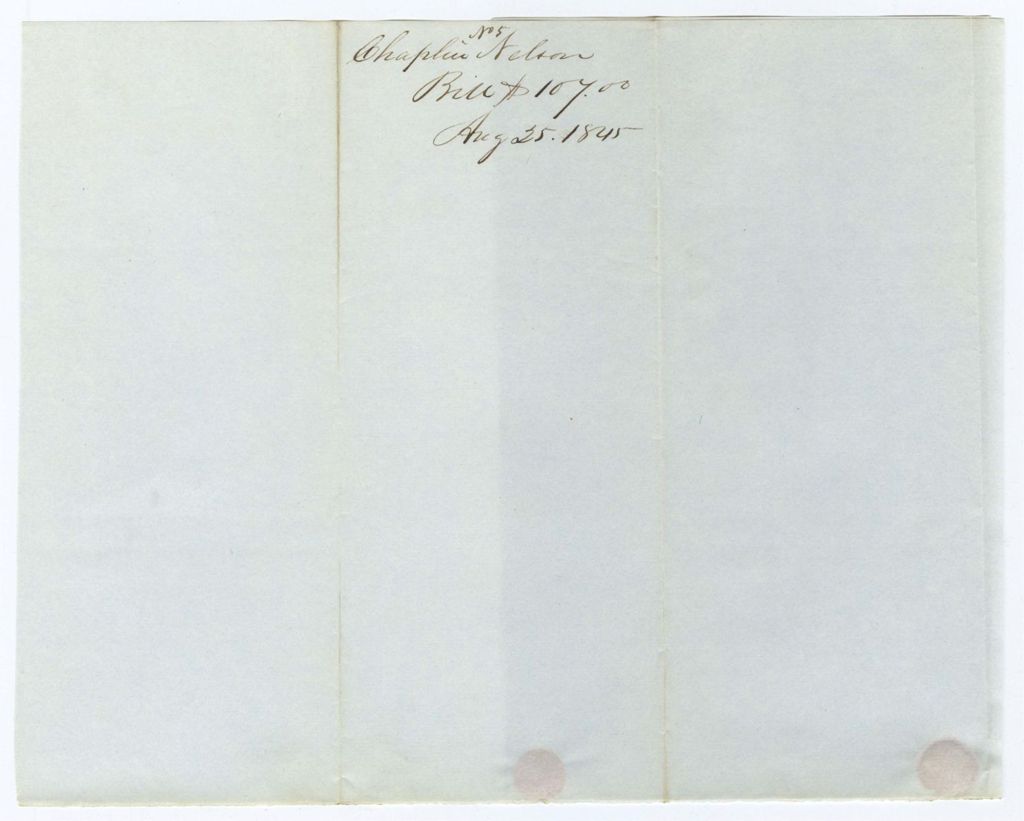 No 5
Chaplin Nelson
Bill $107.00
Aug 25. 1845